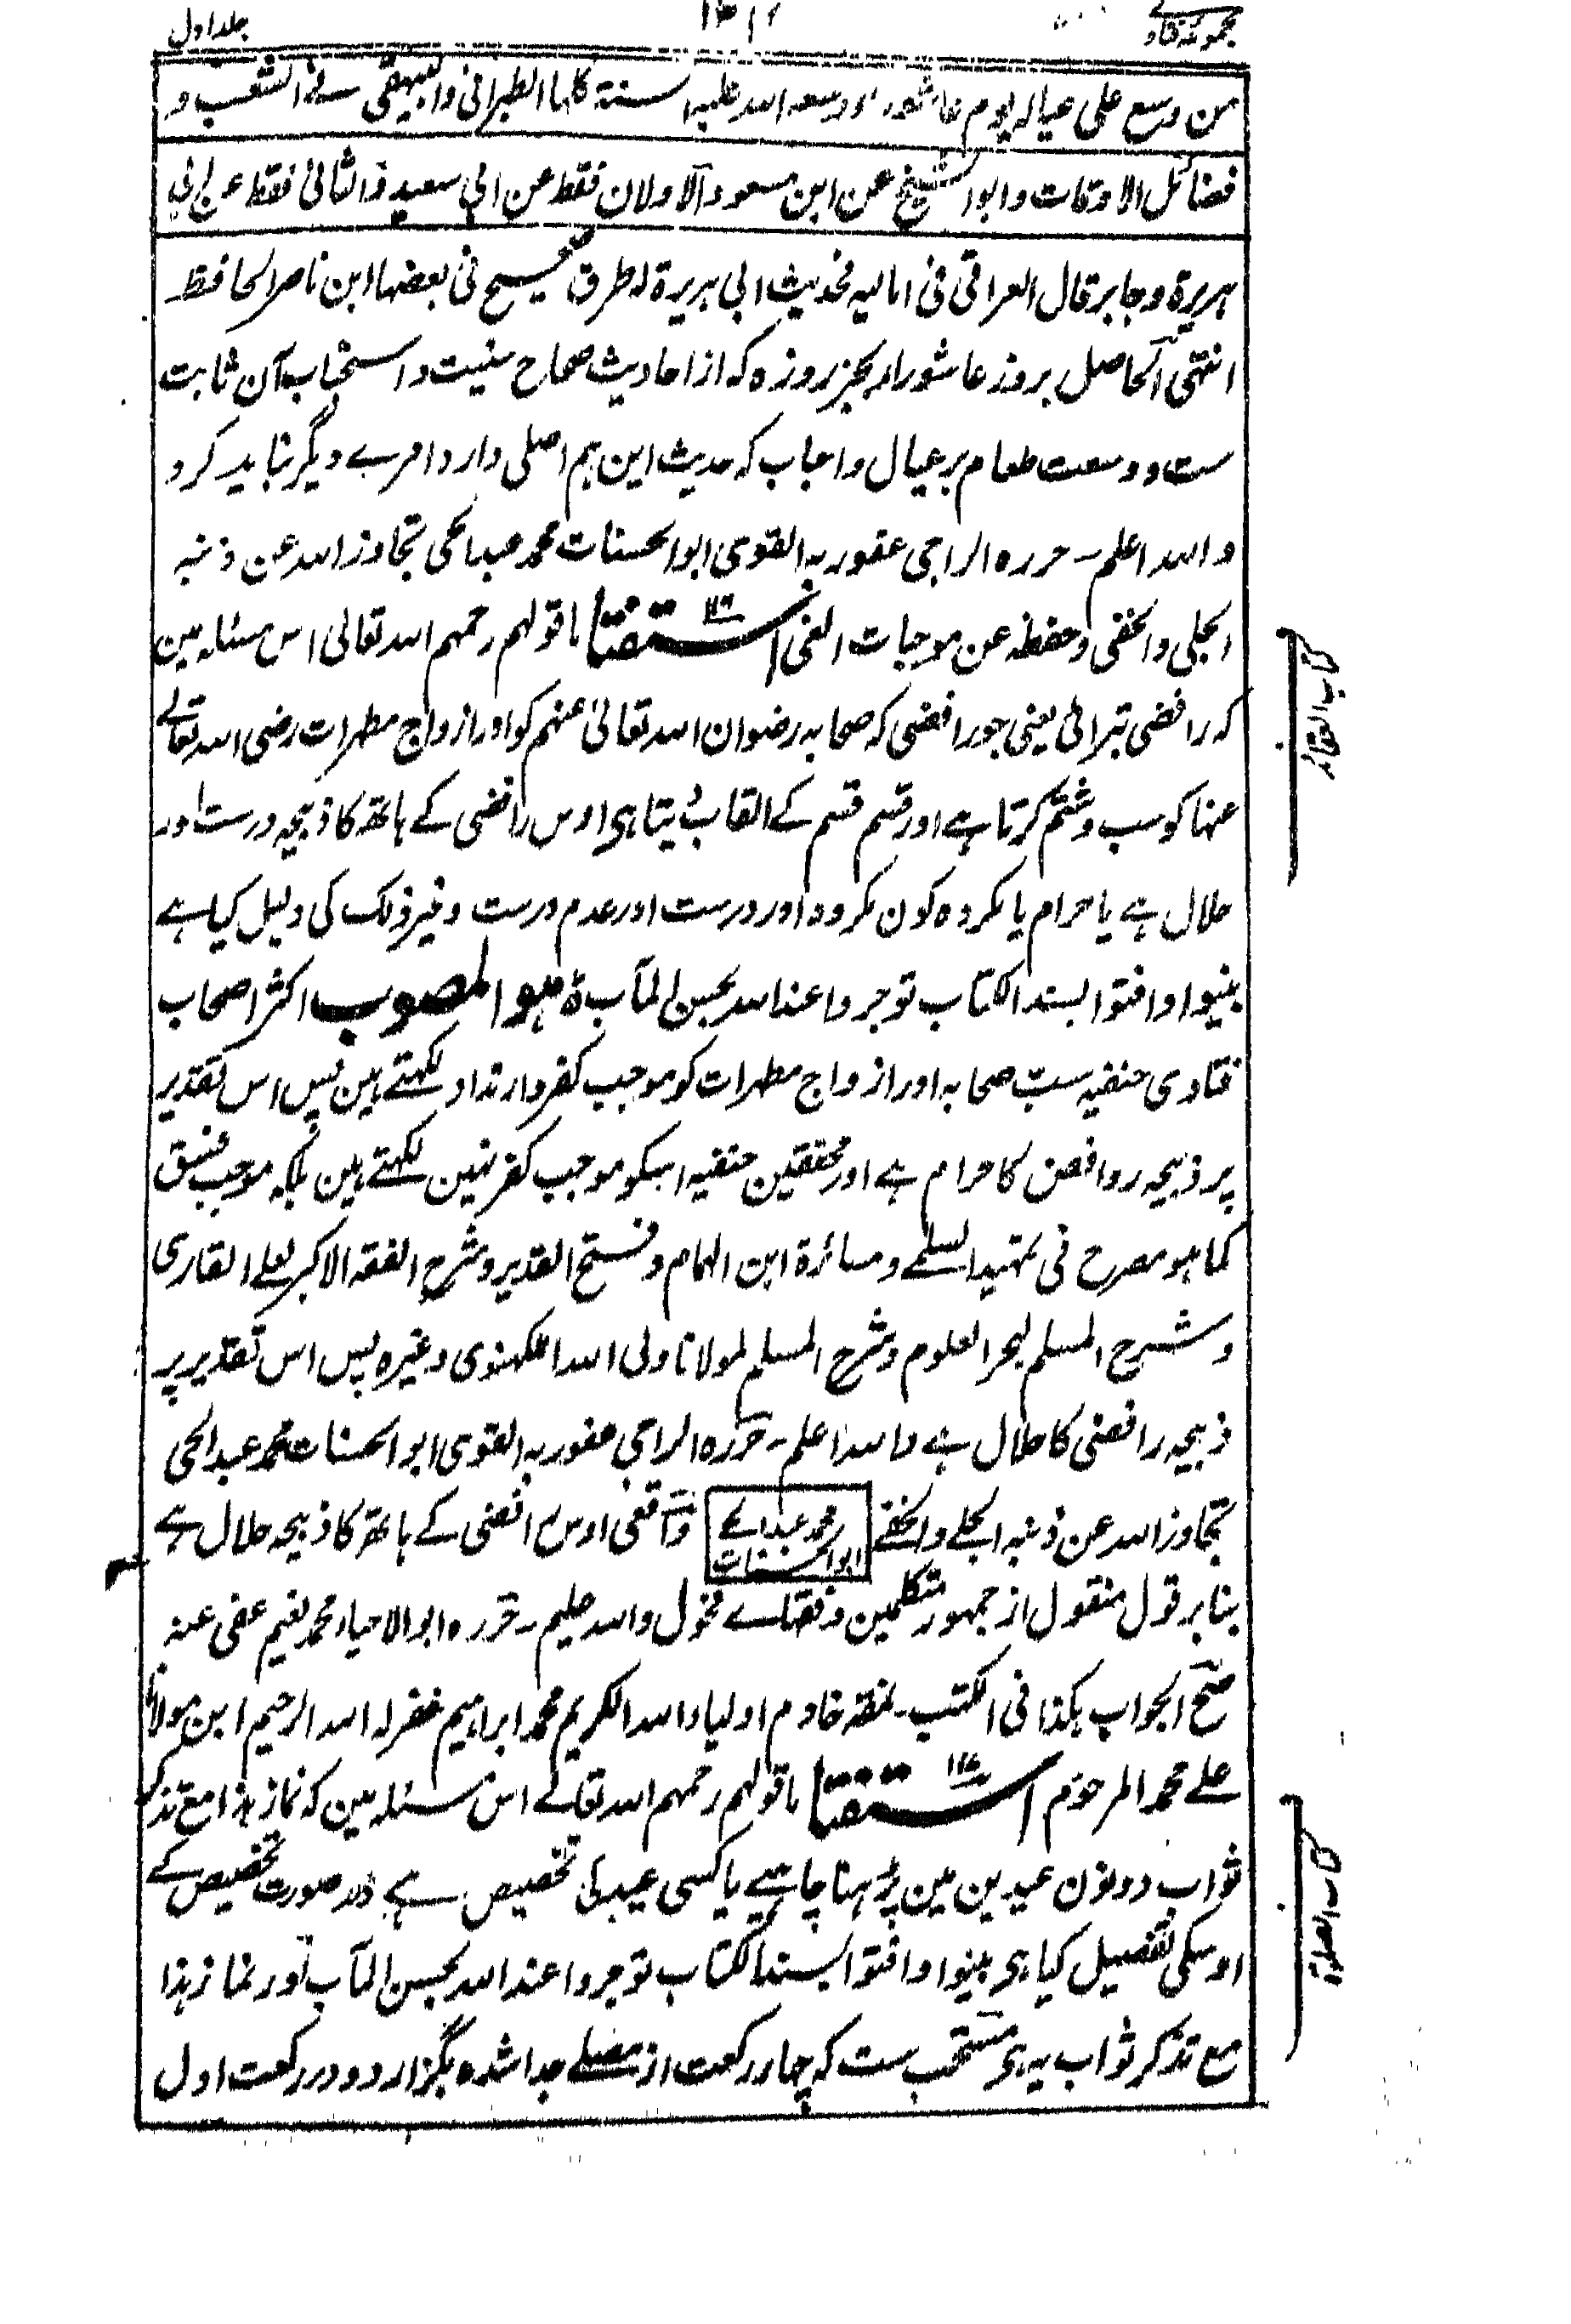 مجموعہ فتاوے جلد اول
من وسع علی عیالہ یوم عاشوراء وسعہ اللہ علیہ السنۃ کلہا الطبرانی والبیہقی فے الشعب و
فضائل الاوقات وابو الشیخ عن ابن مسعود والاولان فقط عن ابی سعید والثانی فقط عن ابی
ہریرۃ وجابر قال العراقی فی امالیہ لحدیث ابی ہریرۃ لہ طرق صحیح فی بعضہا ابن ناصر الحافظ
انتہی الحاصل بروز عاشوراء بجز روزہ کہ از احادیث صحاح سنیت و استحباب آن ثابت
ست و وسعت طعام بر عیال واحباب کہ حدیث این ہم اصلی دارد امرے دیگر نباید کرد
واللہ اعلم۔ حررہ الراجی عفو ربہ القوی ابو الحسنات محمد عبد الحی تجاوز اللہ عن ذنبہ
الجلی والخفی وحفظہ عن موجبات الغی استفتا ما قولہم رحمہم اللہ تعالی اس مسئلہ مین
کہ رافضی تبرائی یعنی جو رافضی کہ صحابہ رضوان اللہ تعالیٰ عنہم کو اور ازواج مطہرات رضی اللہ تعالے
عنہا کو سب وشتم کرتا ہے اور قسم قسم کے القاب دیتا ہی اوس رافضی کے ہاتھ کا ذبیحہ درست اور
حلال ہے یا حرام یا مکروہ کون مکروہ اور درست اور عدم درست وغیر ذلک کی دلیل کیا ہے
بینوا وافتوا بسند الکتاب توجروا عند اللہ بحسن المآب ۃ ہو المصوب اکثر اصحاب
فتاوی حنفیہ سب صحابہ اور ازواج مطہرات کو موجب کفر وارتداد لکہتے ہین پس اس تقدیر
پر ذبیحہ روافض کا حرام ہے اور محققین حنفیہ اسکو موجب کفر نہین لکہتے ہین بلکہ موجب فسق
کما ہو مصرح فی تمہید السلمے ومسائرۃ ابن الہمام وفتح القدیر وشرح الفقہ الاکبر لعلے القاری
وشرح المسلم لبحر العلوم وشرح المسلم لمولانا ولی اللہ اللکہنوی وغیرہ پس اس تقدیر پر
ذبیحہ رافضی کا حلال ہے واللہ اعلم۔ حررہ الراجی عفو ربہ القوی ابو الحسنات محمد عبد الحی
تجاوز اللہ عن ذنبہ الجلے والخفے محمد عبد الحے ابو الحسنات واقعی اوس رافضی کے ہاتھ کا ذبیحہ حلال ہے
بنا بر قول منقول از جمہور متکلمین وفقہاے فحول واللہ علیم۔ حررہ ابو الاحیاء محمد نعیم عفی عنہ
صح الجواب ہکذا فی الکتب۔ نمقہ خادم اولیاء اللہ الکریم محمد ابراہیم غفر لہ اللہ الرحیم ابن مولانا
علے محمد المرحوم استفتا ما قولہم رحمہم اللہ تعالے اس مسئلہ مین کہ نماز ہذا مع تذکر
ثواب دونون عیدین مین پڑہنا چاہیے یا کسی عید کی تخصیص ہے در صورت تخصیص کے
اوسکی تفصیل کیا ہی بینوا وافتوا بسند الکتاب توجروا عند اللہ بحسن المآب اور نماز ہذا
مع تذکر ثواب یہ ہی مستحب ست کہ چہار رکعت از مصلے جدا شدہ بگزارد و در رکعت اول
کتاب العقائد
کتاب الصلوۃ